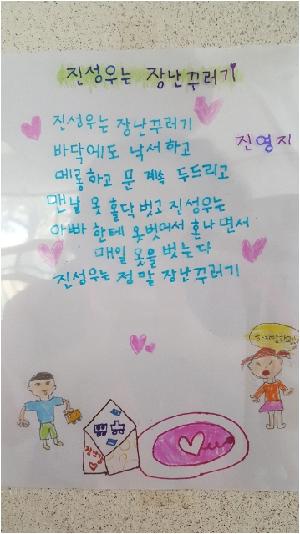 진성우는 장난꾸러기
진성우는 장난꾸러기
진영지
바닥에도 낙서하고
메롱하고 문 계속 두드리고
맨날 옷 홀닥 벗고 진성우는
아빠 한테 옷벗어서 혼나 면서
매일 옷을 벗는다
진성우는 정말 장난꾸러기